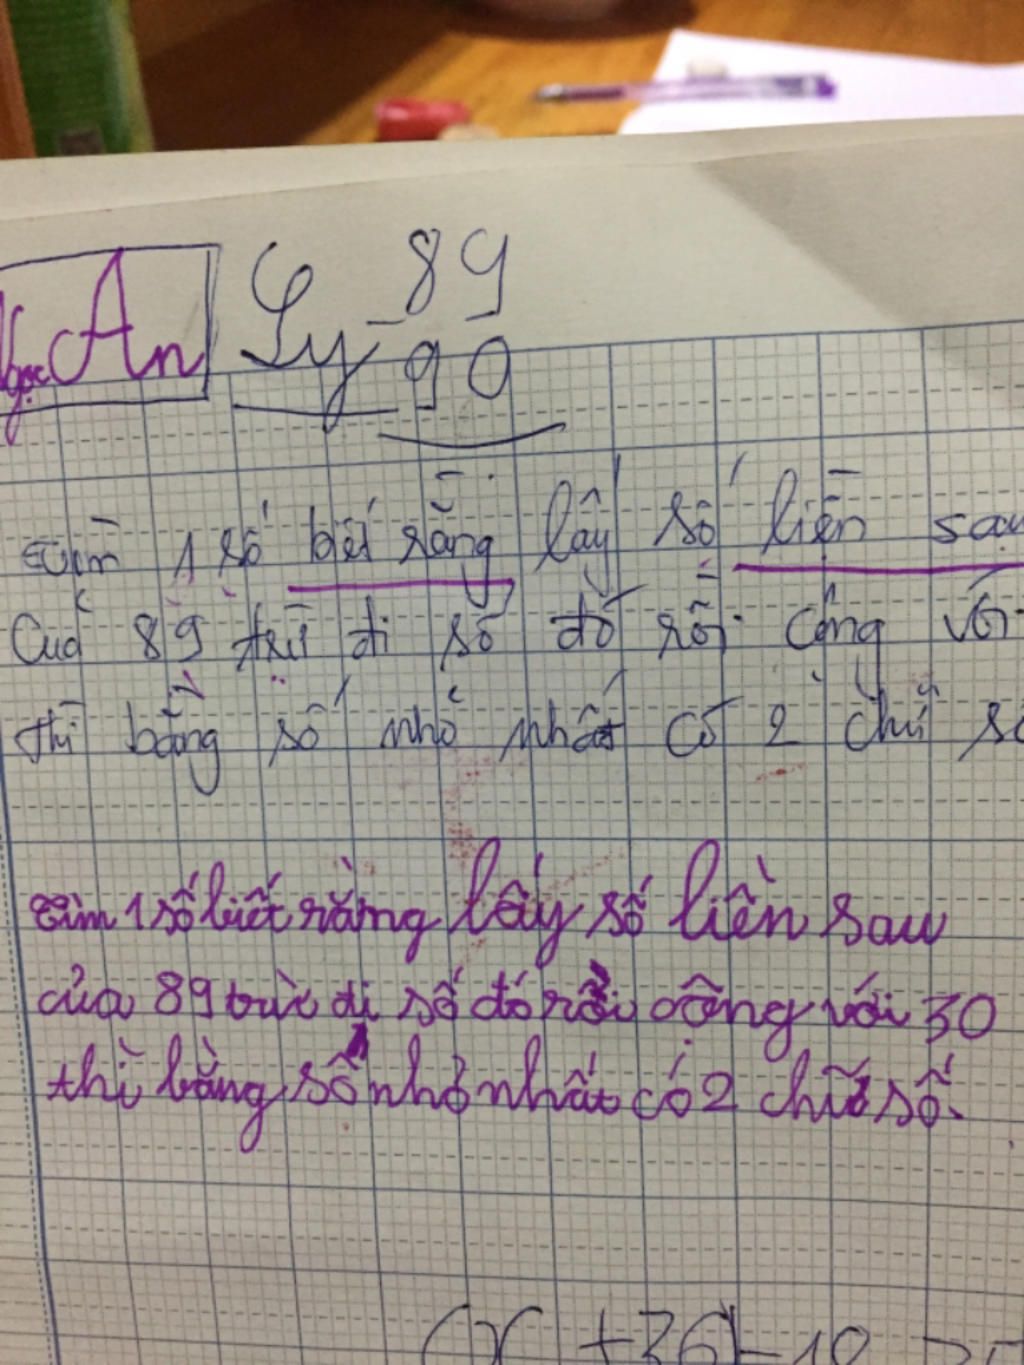 Ngọc An
Ly - 89
90
Tìm 1 số biết rằng lấy số liền sau
Của 89 trừ đi số đó rồi cộng với
thì bằng số nhỏ nhất có 2 chữ số
Tìm 1 số biết rằng lấy số liền sau
của 89 trừ đi số đó rồi cộng với 30
thì bằng số nhỏ nhất có 2 chữ số.
(x + 36) - 10